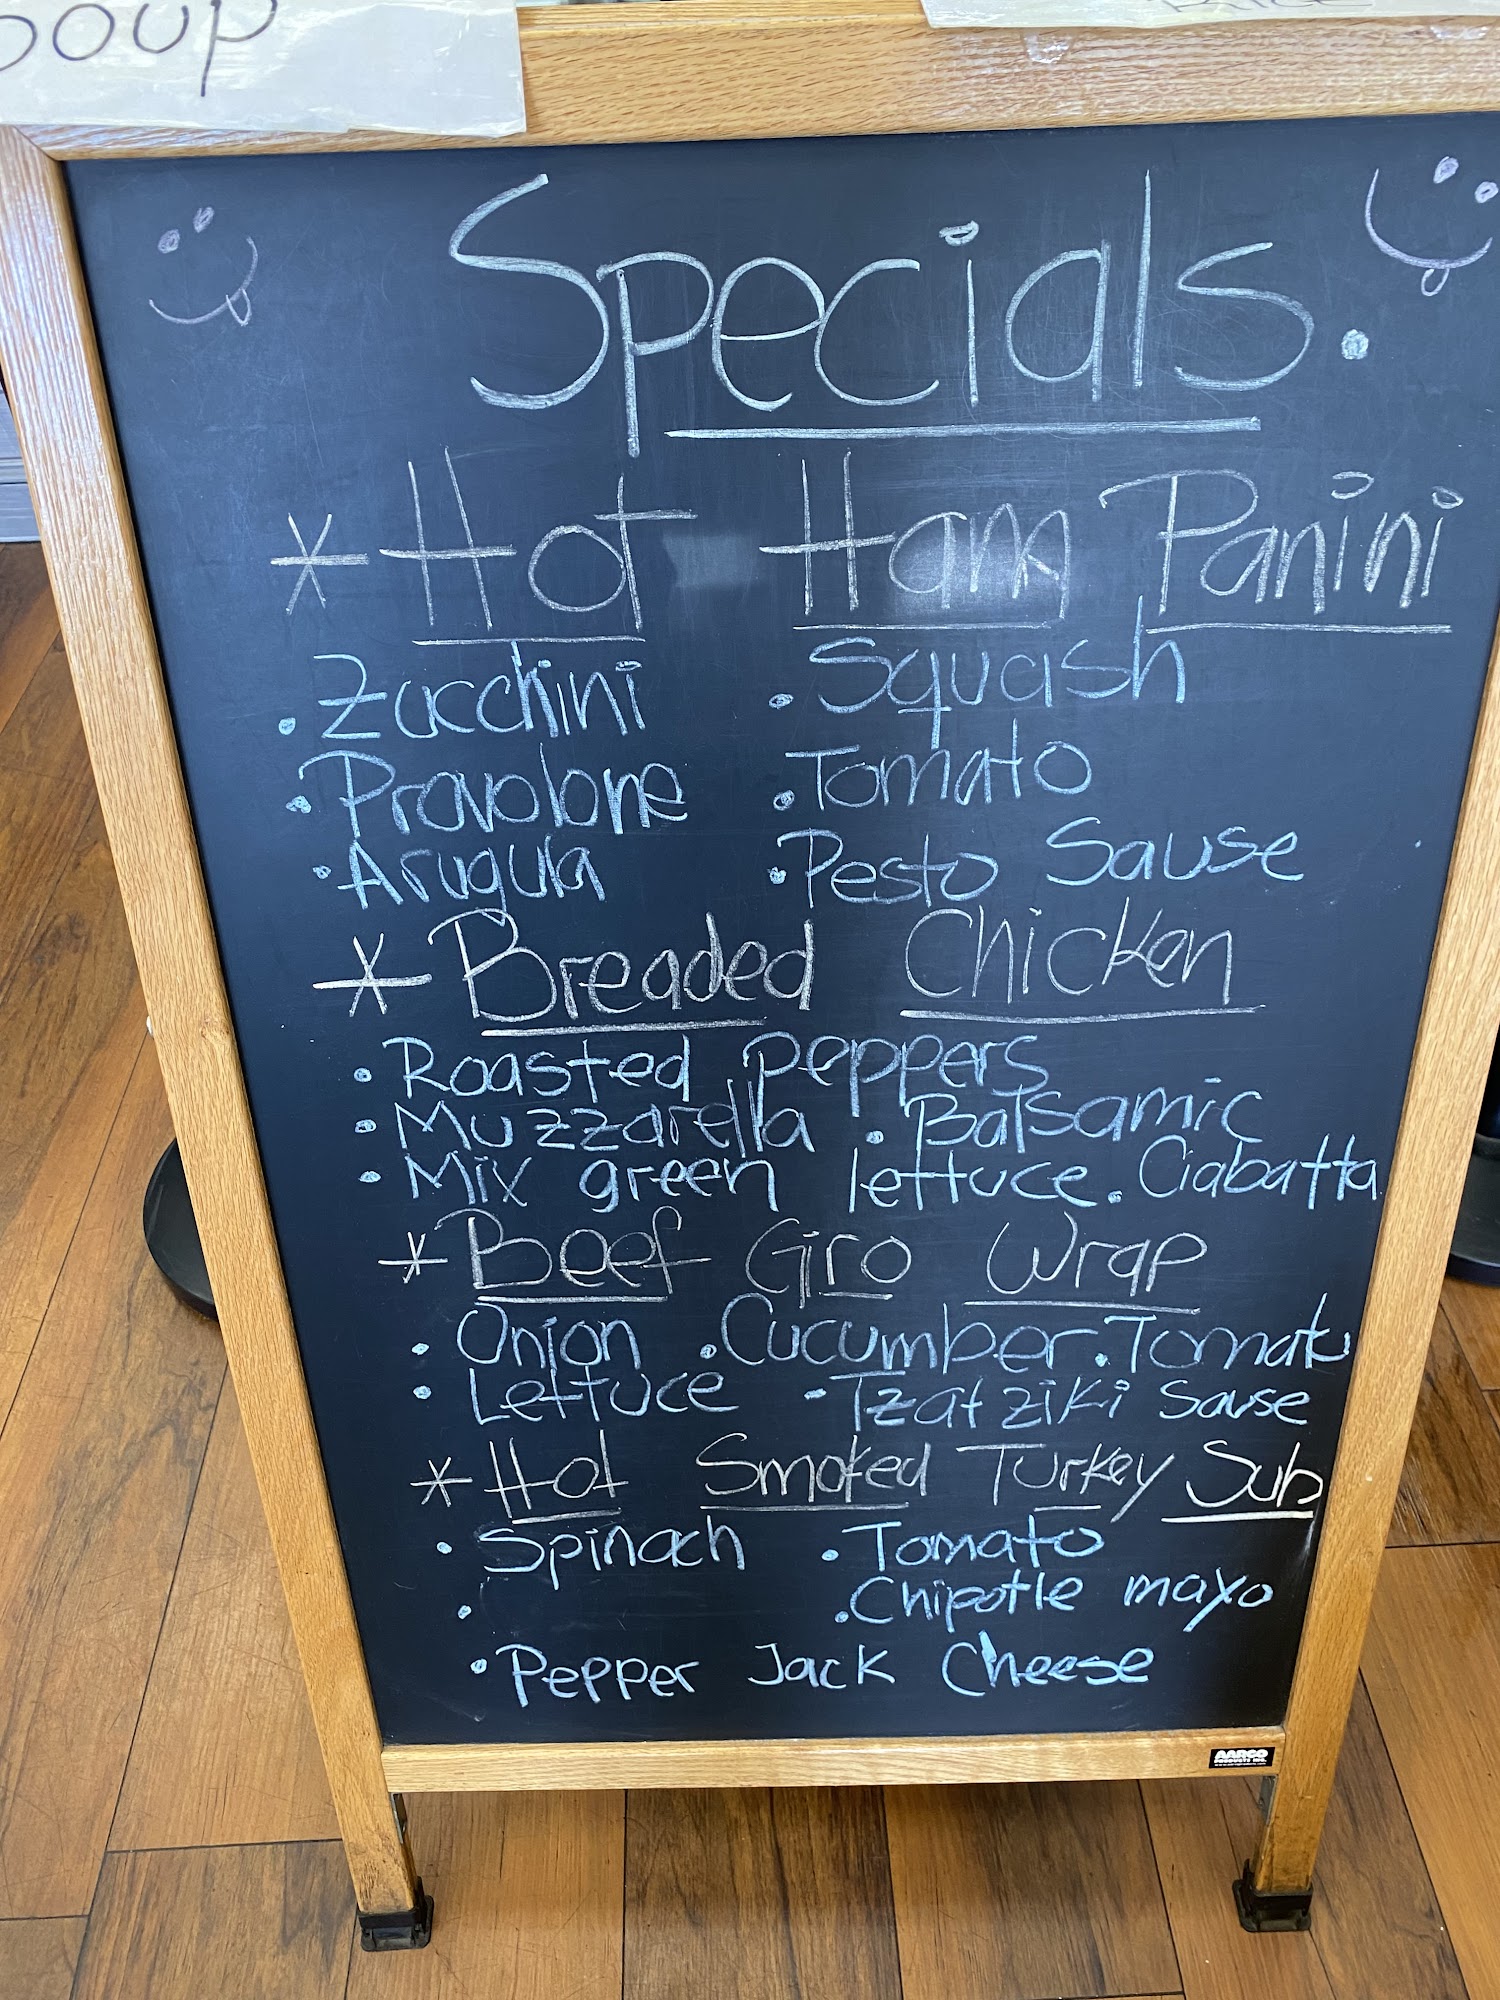 Soup
Specials.
* Hot Ham Panini
. Zucchini . Squash
. Provolone . Tomato
. Arugula . Pesto Sause
* Breaded Chicken
. Roasted peppers
. Muzzarella . Balsamic
. Mix green lettuce . Ciabatta
* Beef Giro Wrap
. Onion . Cucumber . Tomato
. Lettuce - Tzatziki Sause
* Hot Smoked Turkey Sub
. Spinach . Tomato
. . Chipotle mayo
. Pepper Jack Cheese
AARCO
PRODUCTS INC.